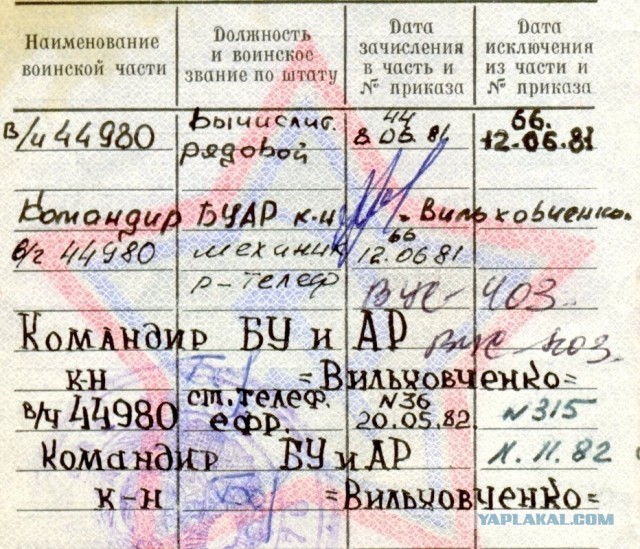 Наименование воинской части
Должность и воинское звание по штату
Дата зачисления в часть и № приказа
Дата исключения из части и № приказа
в/ч 44980
Вычислит. рядовой
44
8.06.81
66.
12.06.81
Командир БУАР к-н = Вильховченко.
в/г 44980
механик
р-телеф
66
12.06.81
ВУС-403.
Командир БУ и АР
ВУС-403.
к-н =Вильховченко=
в/ч 44980
ст.телеф.
ефр.
N36
20.05.82.
N315
11.82
Командир БУ и АР
к-н =Вильховченко=
YAPLAKAL.COM